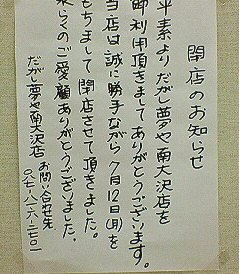 閉店のお知らせ
平素よりだがし夢や南大沢店を
御利用頂きましてありがとうございます。
当店は誠に勝手ながら7月12日(月)を
もちまして閉店させて頂きました。
らくのご愛顧ありがとうございました。
だがし夢や南大沢店
お問い合わせ先